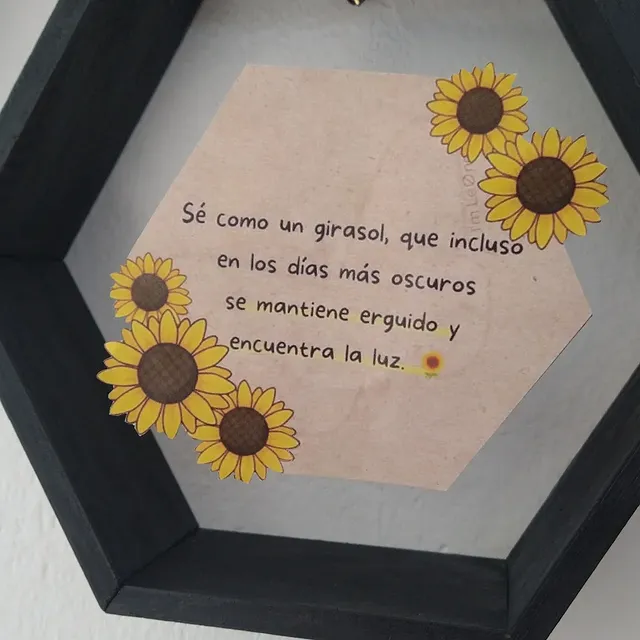 Sé como un girasol, que incluso
en los días más oscuros
se mantiene erguido y
encuentra la luz.